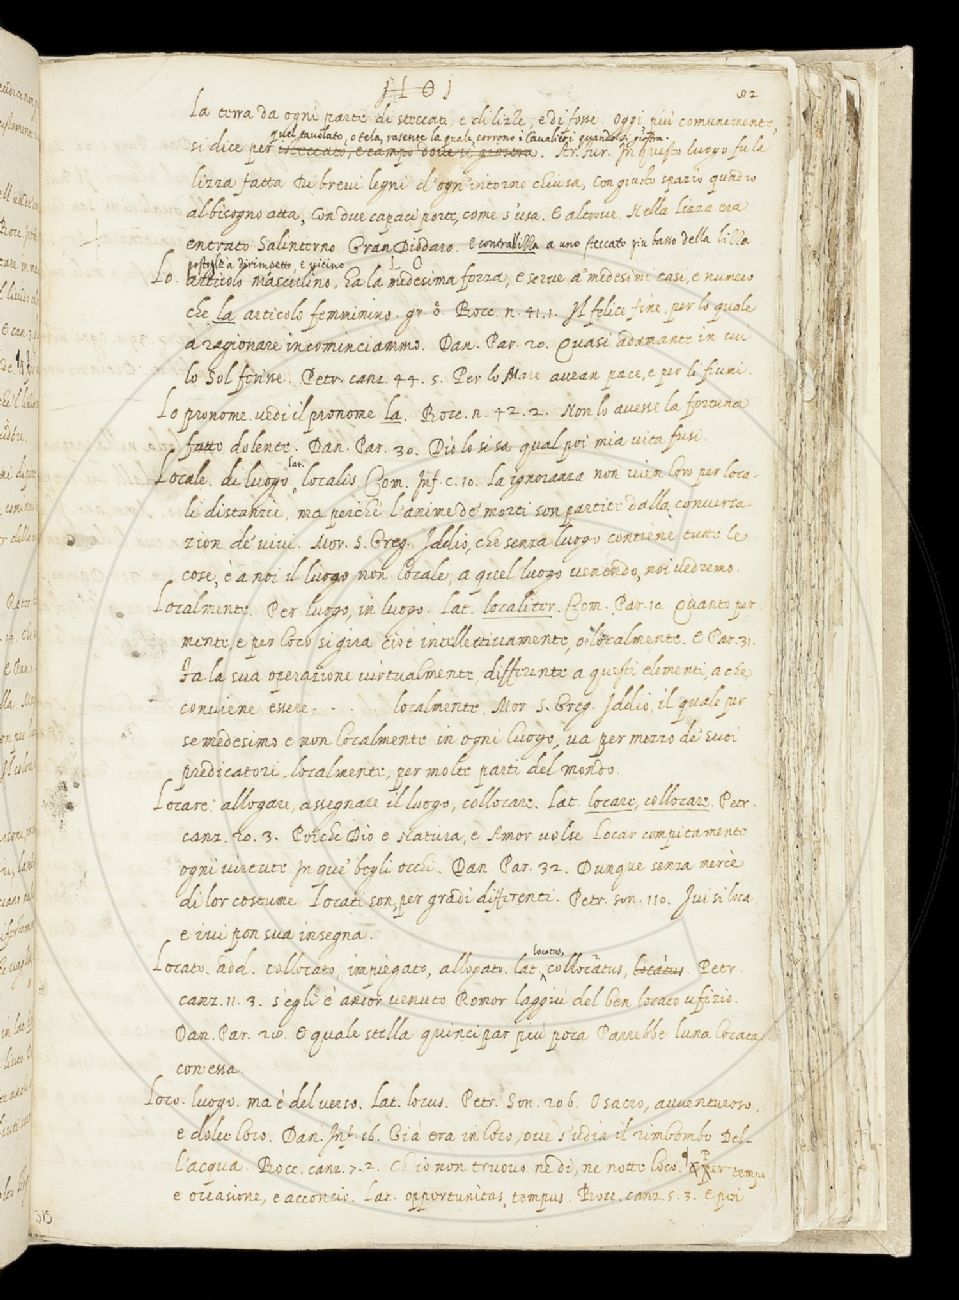 82
la terra da ogni parte di steccati, e di lizze, e di fosse. Oggi, più comunemente,
quel tavolato, o tela, rasente la quale corrono i Cavalieri quando si giostra.
si dice per steccato, e campo dove si giostra. Str. Aur. In questo luogo fu la
lizza fatta di brevi legni d'ogn'intorno chiusa, con giusto spazio quadro
al bisogno atta, con due capaci porte, come s'usa. E altrove. Nella lizza era
entrato Salinterno Gran Diodaro. E contrallizza a uno steccato più basso della lizza
postole a dirimpetto, e vicino
L O
Lo. articolo mascolino, ha la medesima forza, e serve a' medesimi casi, e numero
che la articolo femminino. Bocc. n. 41. 1. Il felice fine per lo quale
a ragionare incominciammo. Dan. Par. 20. Quasi adamante in cui
lo Sol ferisse. Petr. canz. 44. 5. Per lo Mare avean pace, e per li fiumi.
Lo pronome. vedi il pronome la. Bocc. n. 42. 2. Non lo avesse la fortuna
fatto dolente. Dan. Par. 30. Dio lo si sa qual poi mia vita fusi.
Locale. di luogo lat. localis Com. Inf. c. 10. La ignoranza non vien loro per loca-
li distanzie, ma perchè l'anime de' morti son partite dalla conversa-
zion de' vivi. Mor. S. Greg. Iddio, che senza luogo contiene tutte le
cose, è a noi il luogo non locale, a quel luogo venendo, noi vedremo.
Localmente. Per luogo, in luogo. Lat. localiter. Com. Par. 10. Quanto per
mente, e per loco si gira cioè intellettivamente, o localmente. E Par. 31.
Fa la sua operazione virtualmente, differente a questi elementi, a che
conviene essere . . . . localmente. Mor S. Greg. Iddio, il quale per
se medesimo e non localmente in ogni luogo, va per mezzo de' suoi
predicatori localmente, per molte parti del mondo.
Locare. allogare, assegnare il luogo, collocare. Lat. locare, collocare. Petr.
canz. 20. 3. Poichè Dio e Natura, e Amor volse Locar compitamente
ogni virtute In que' begli occhi. Dan. Par. 32. Dunque senza mercè
di lor costume Locati son, per gradi differenti. Petr. son. 110. Ivi si loca
e ivi pon sua insegna.
Locato. add. collocato, impiegato, allogato. lat. locatus, collocatus, locatus. Petr.
canz. 11. 3. S'egli è ancor venuto Romor laggiù del ben locato ufizio.
Dan. Par. 28. E quale stella quinci par più poca Parrebbe luna locata
con essa.
Loco. luogo. ma è del verso. Lat. locus. Petr. Son. 206. O sacro, avventuroso,
e dolce loco. Dan. Inf. 16. Già era in loco, ove s'udia il rimbombo Del-
l'acqua. Bocc. canz. 7. 2. Ch'io non truovo nè dì, nè notte loco. Per tempo
e occasione, e acconcio. Lat. opportunitas, tempus. Bocc. canz. 5. 3. E poi
315